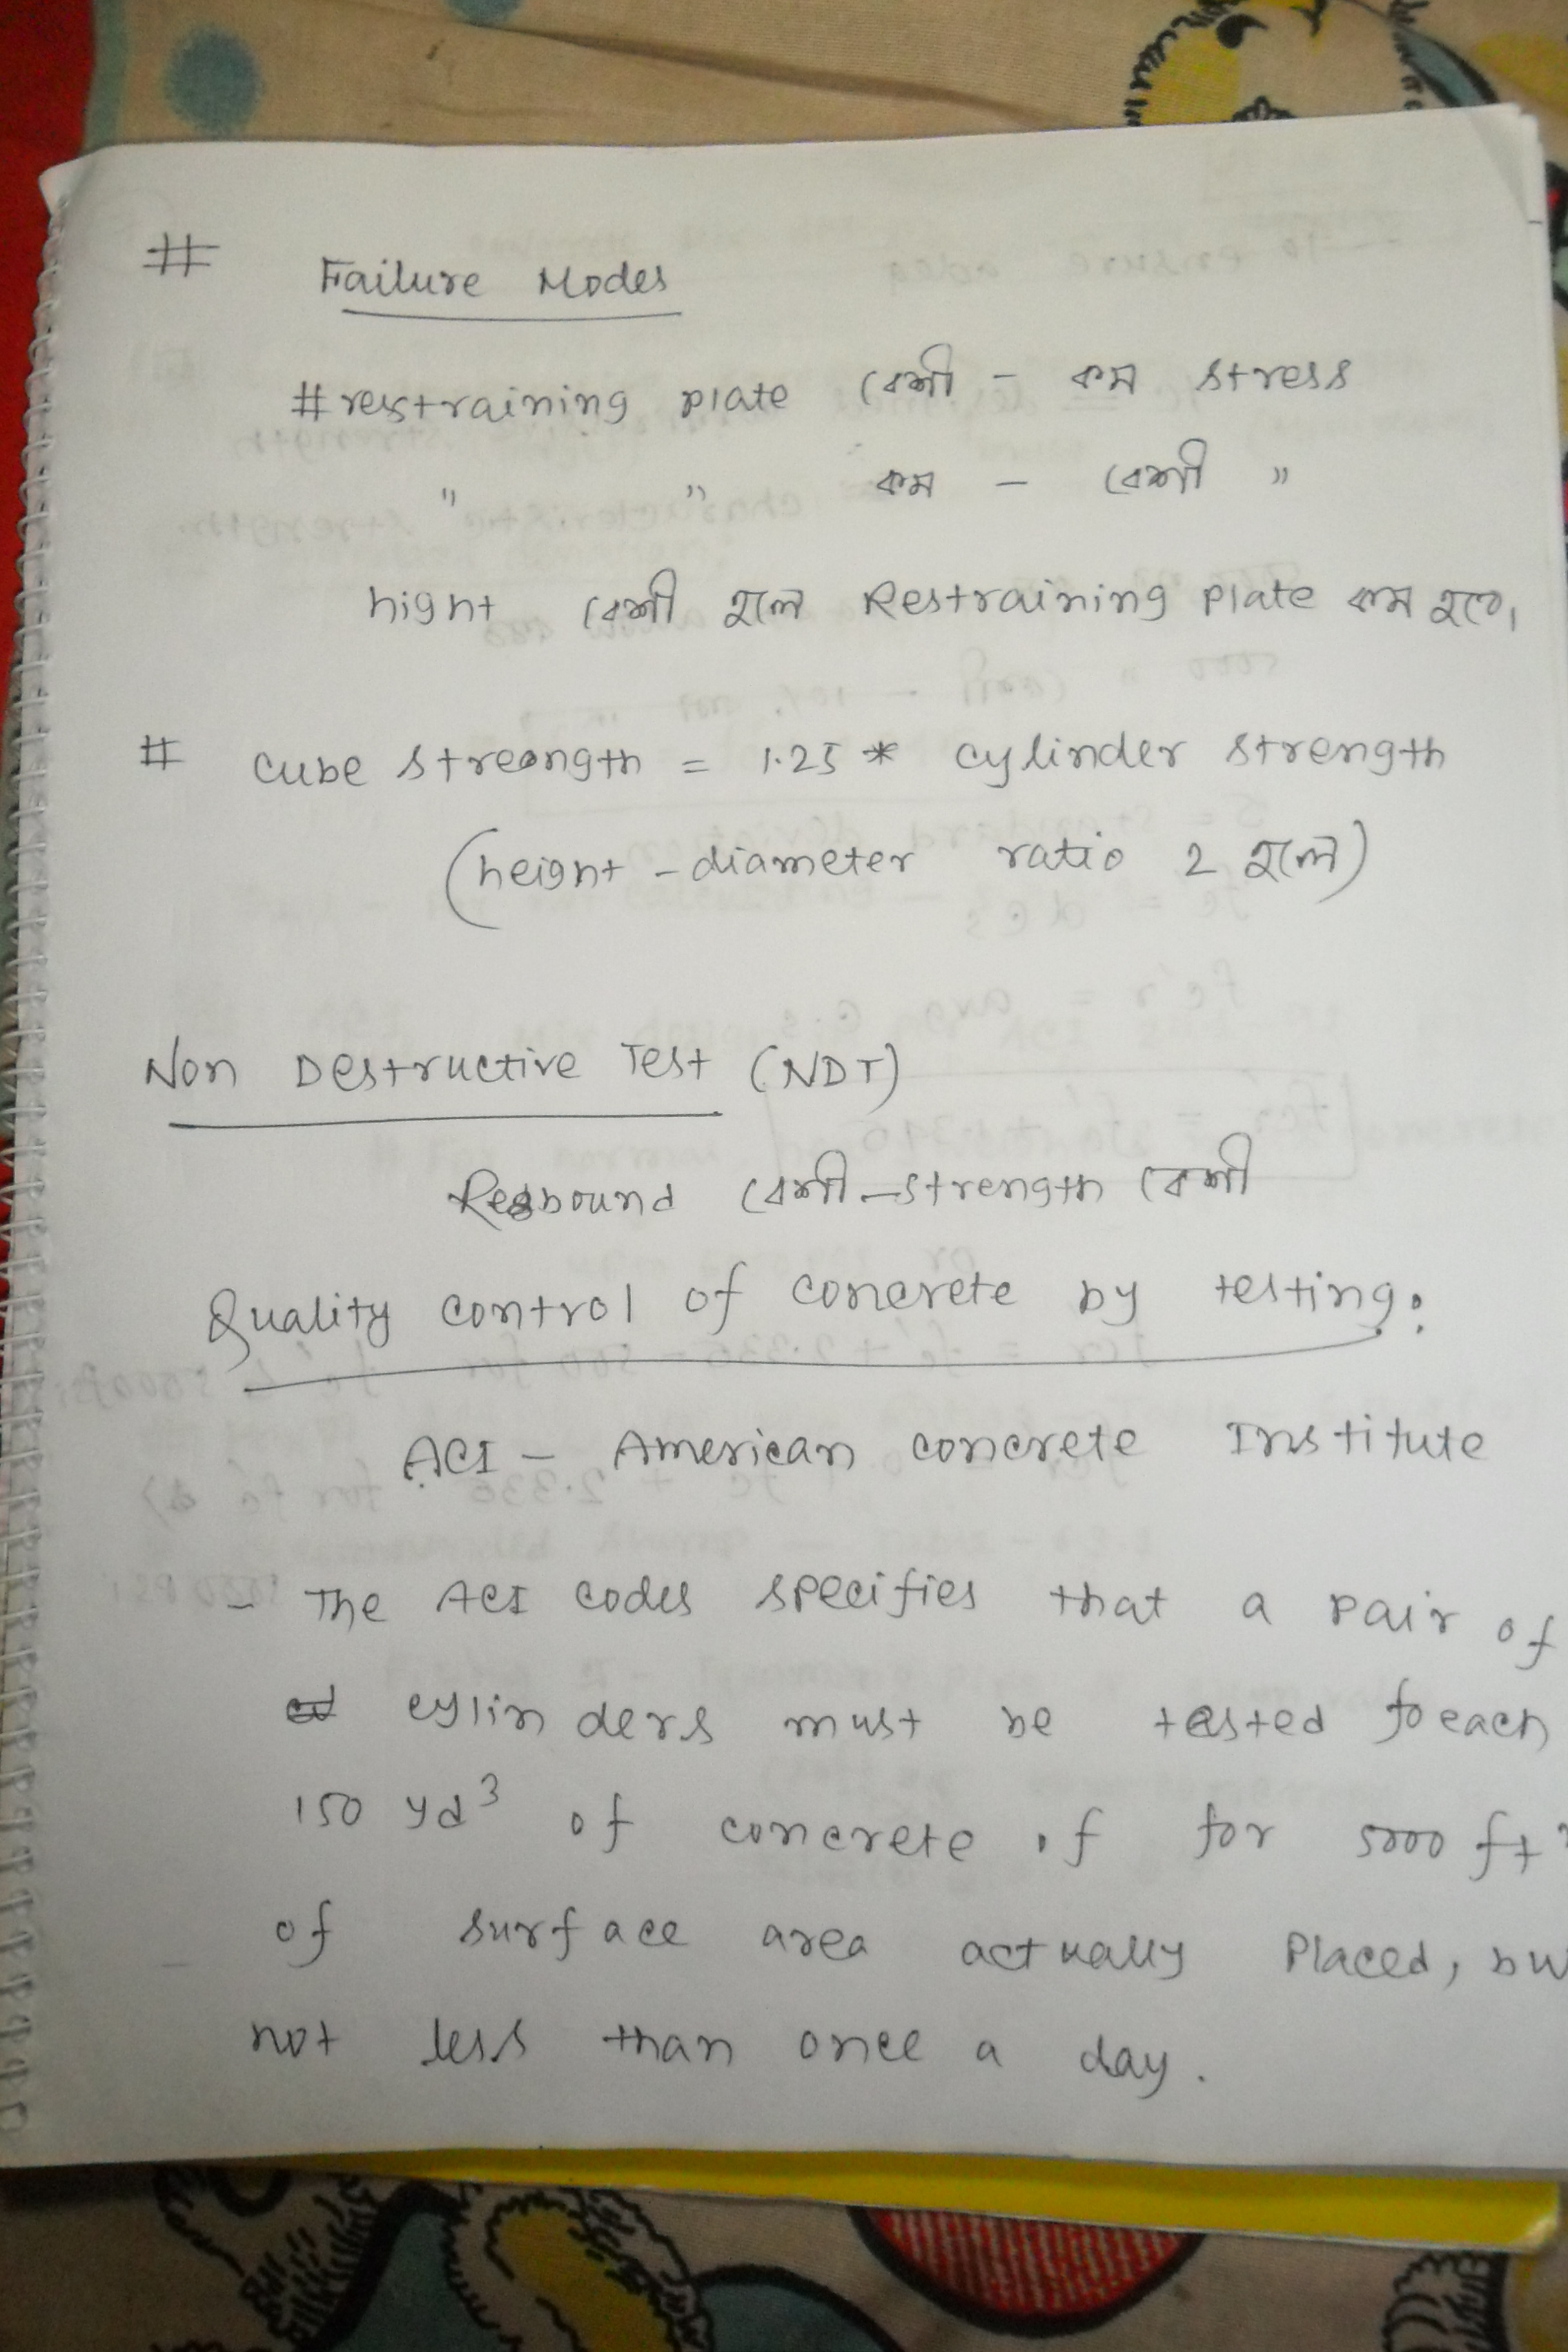 # Failure Modes
# restraining plate বেশী - কম stress
" " কম - বেশী "
hight বেশী হলে Restraining plate কম হবে,
# cube streongth = 1.25 * cylinder strength
(height - diameter ratio 2 হলে)
Non Destructive Test (NDT)
Rebound বেশী - strength বেশী
Quality control of concrete by testing:
ACI - American concrete Institute
- The ACI codes specifies that a pair of
cylinders must be tested fo each
150 yd³ of concrete of for 5000 ft²
of surface area actually Placed, bu
not less than once a day.